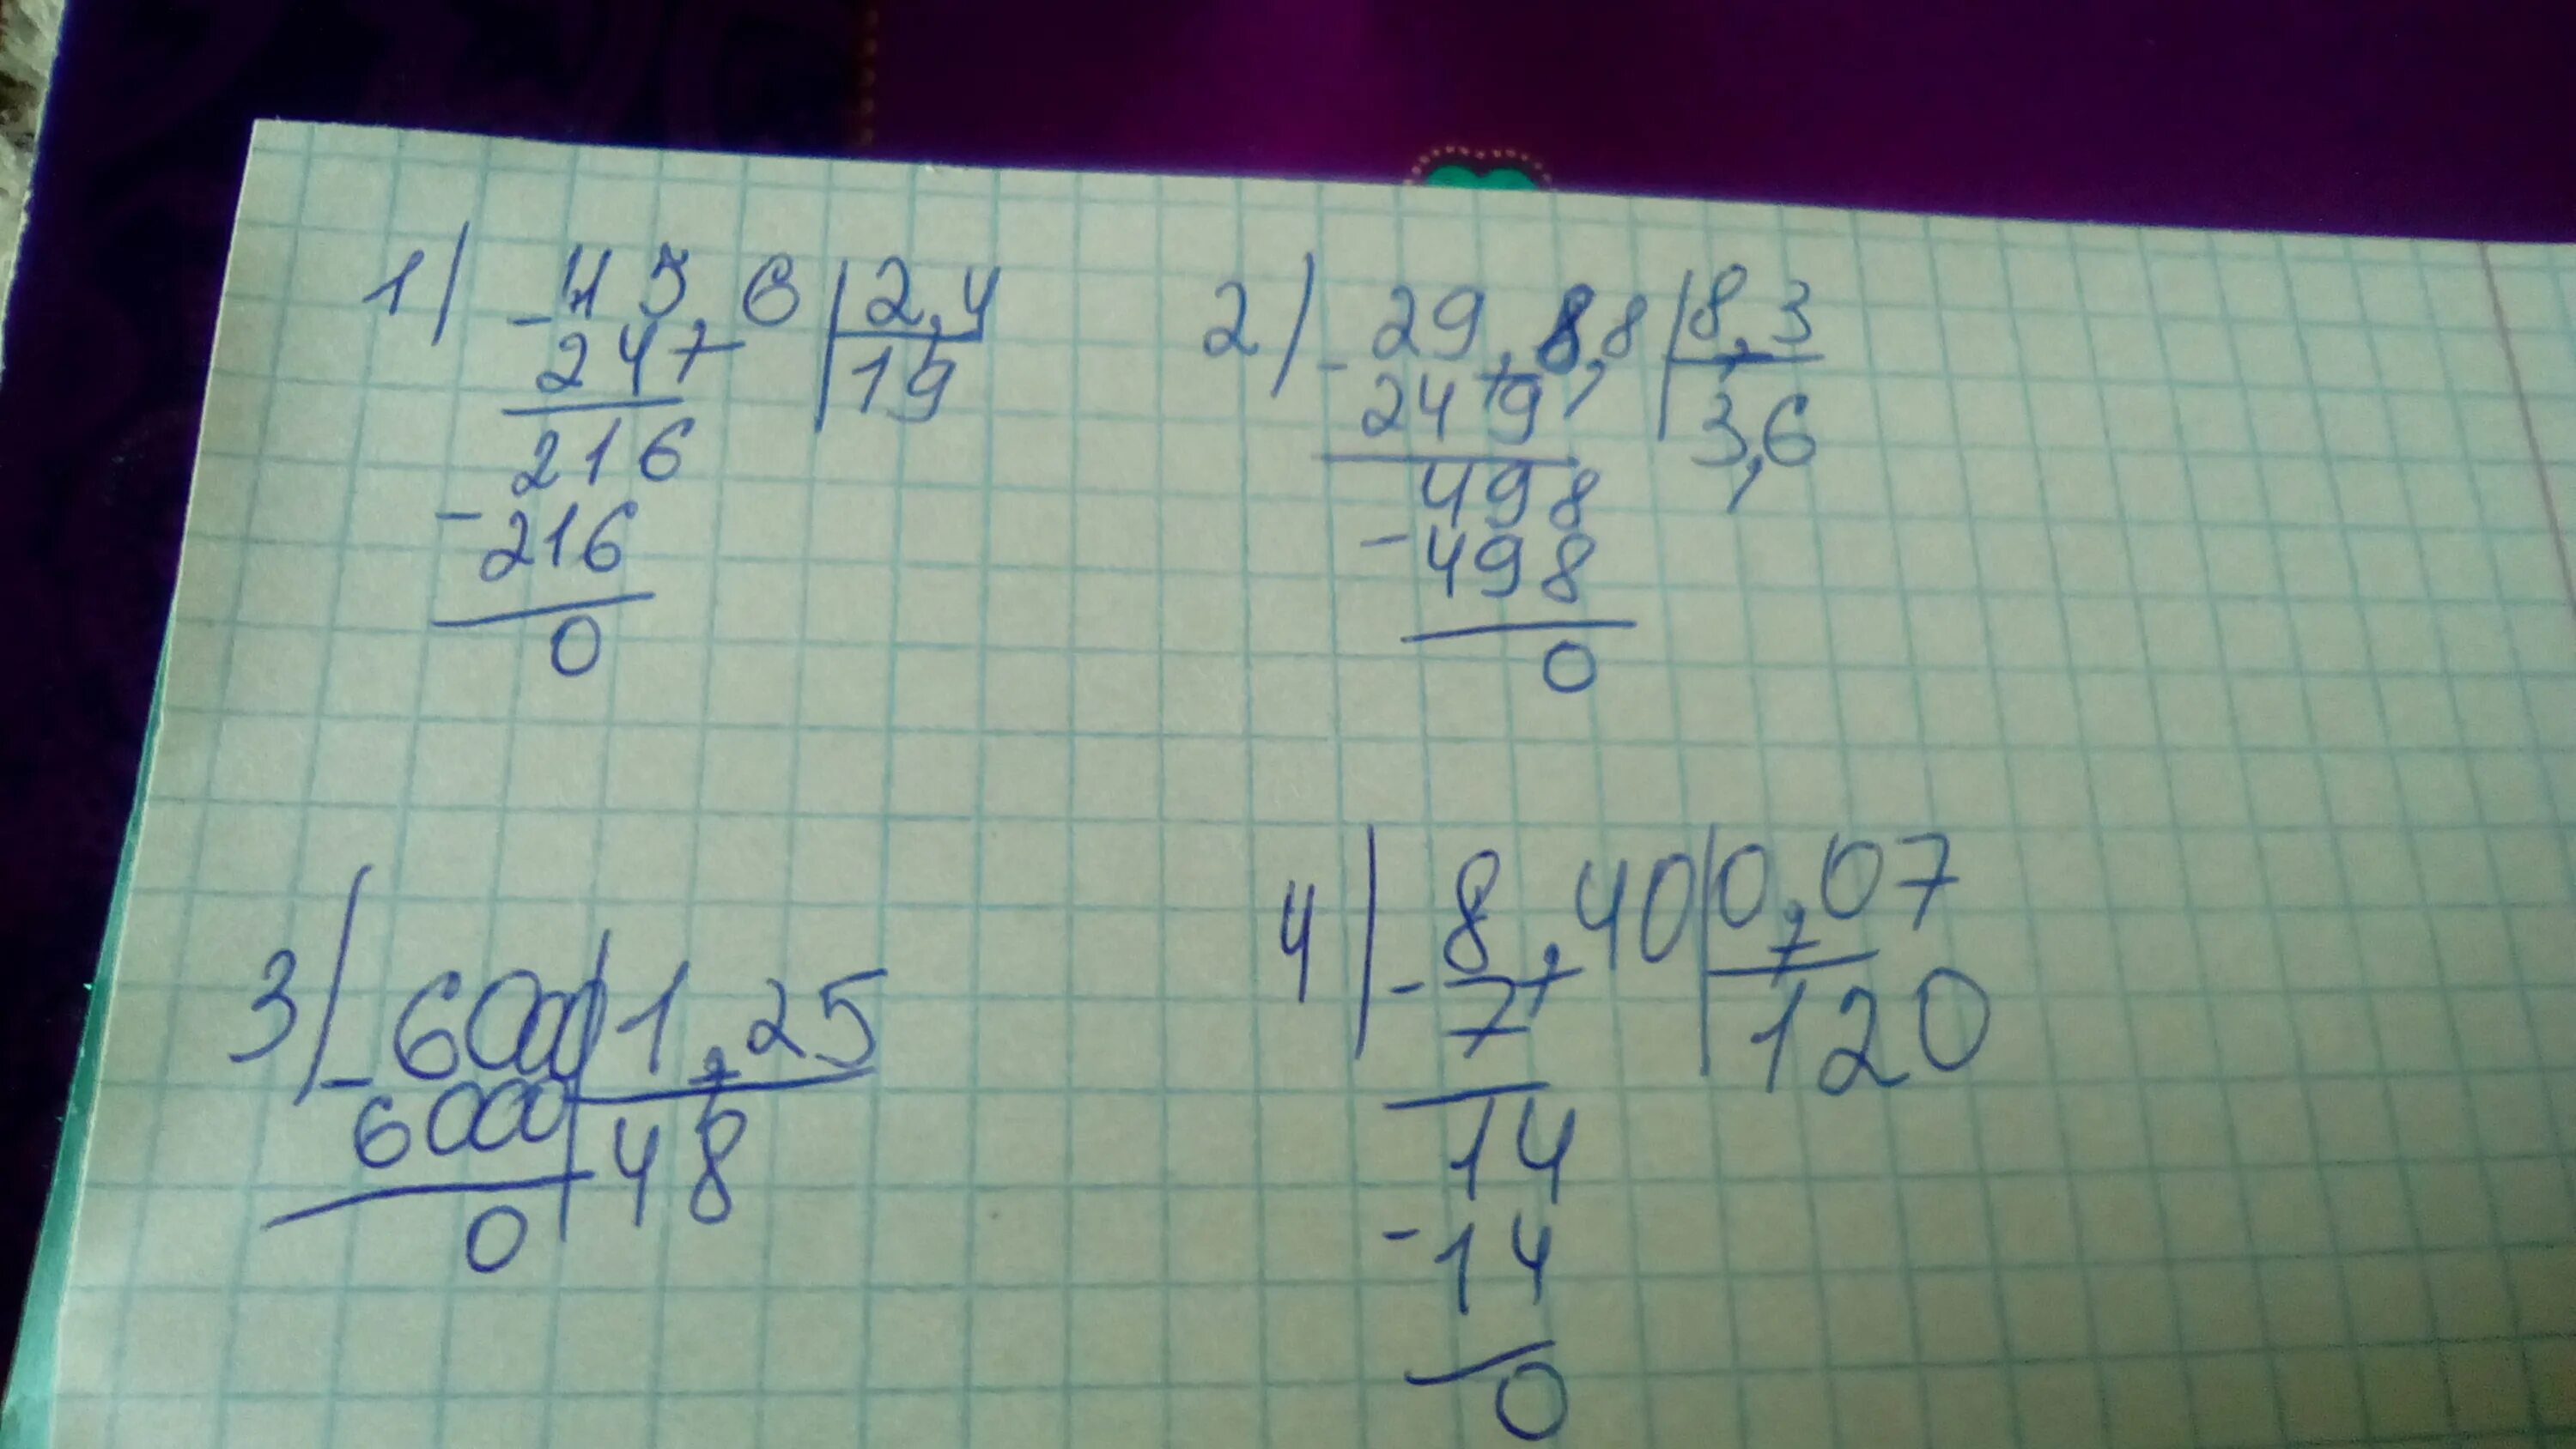 1) - 45,6 | 2,4
24 | 19
216
- 216
0
2) - 29,8,8 | 8,3
249 | 3,6
498
- 498
0
3) - 6000 | 1,25
6000 | 48
0
4) - 8,40 | 0,07
7 | 120
14
- 14
0